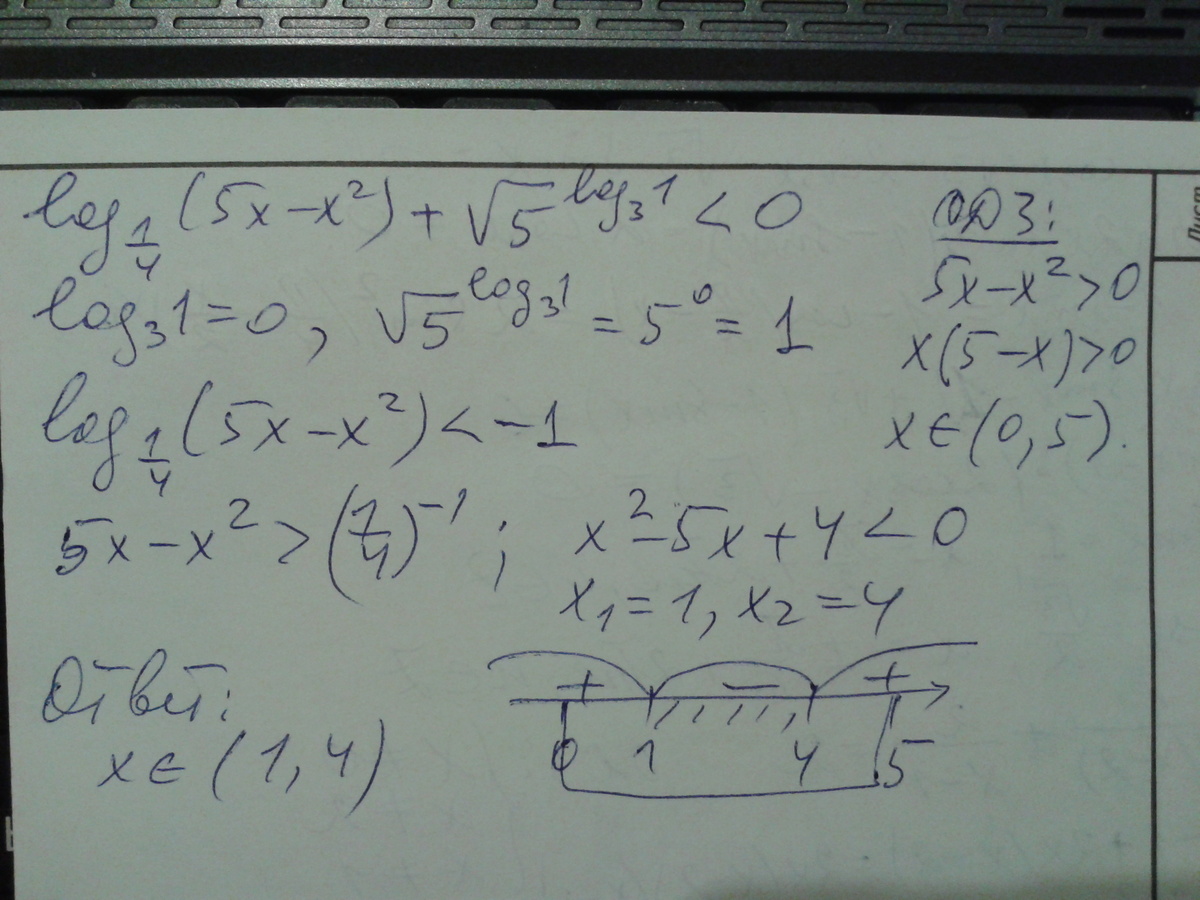 log_{1/4}(5x-x²)+√5^{log₃1}<0
ОДЗ:
5x-x²>0
x(5-x)>0
x∈(0,5).
log₃1=0, √5^{log₃1}=5⁰=1
log_{1/4}(5x-x²)<-1
5x-x²>(1/4)⁻¹; x²-5x+4<0
x₁=1, x₂=4
Ответ:
x∈(1,4)
+ - +
0 1 4 5
Лист